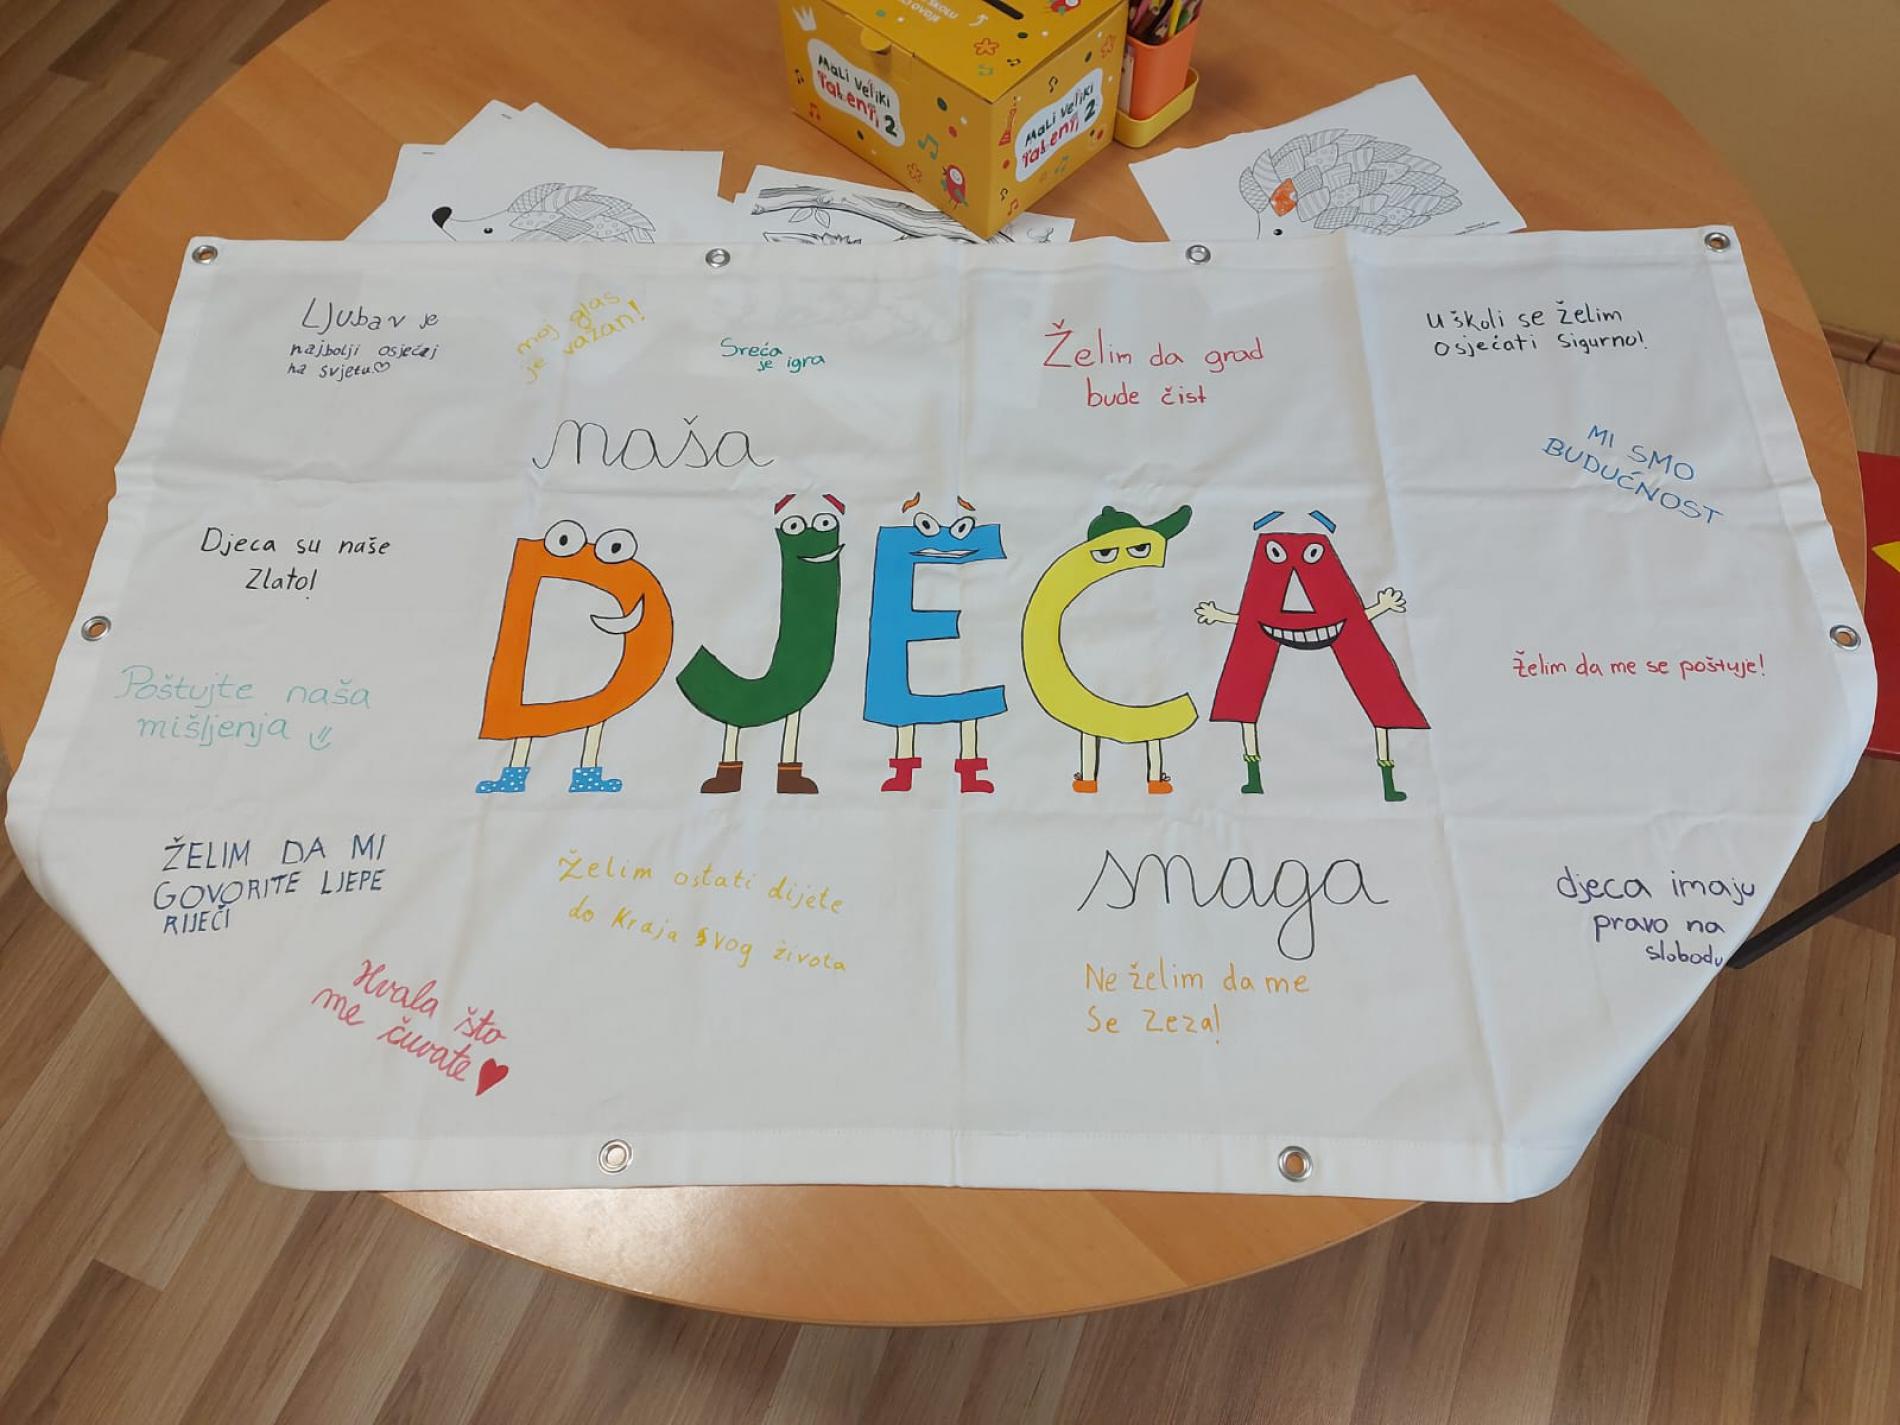 ŠKOLU
MALI VELIKI
TALENTI 2
MALI VELIKI
TALENTI 2
Ljubav je
najbolji osjećaj
na svjetu
moj glas
je važan!
Sreća
je igra
Želim da grad
bude čist
U školi se želim
osjećati sigurno!
MI SMO
BUDUĆNOST
naša
Djeca su naše
Zlato!
DJECA
Poštujte naša
mišljenja
Želim da me se poštuje!
ŽELIM DA MI
GOVORITE LJEPE
RIJEČI
Želim ostati dijete
do kraja svog života
snaga
djeca imaju
pravo na
slobodu
Hvala što
me čuvate
Ne želim da me
se zeza!